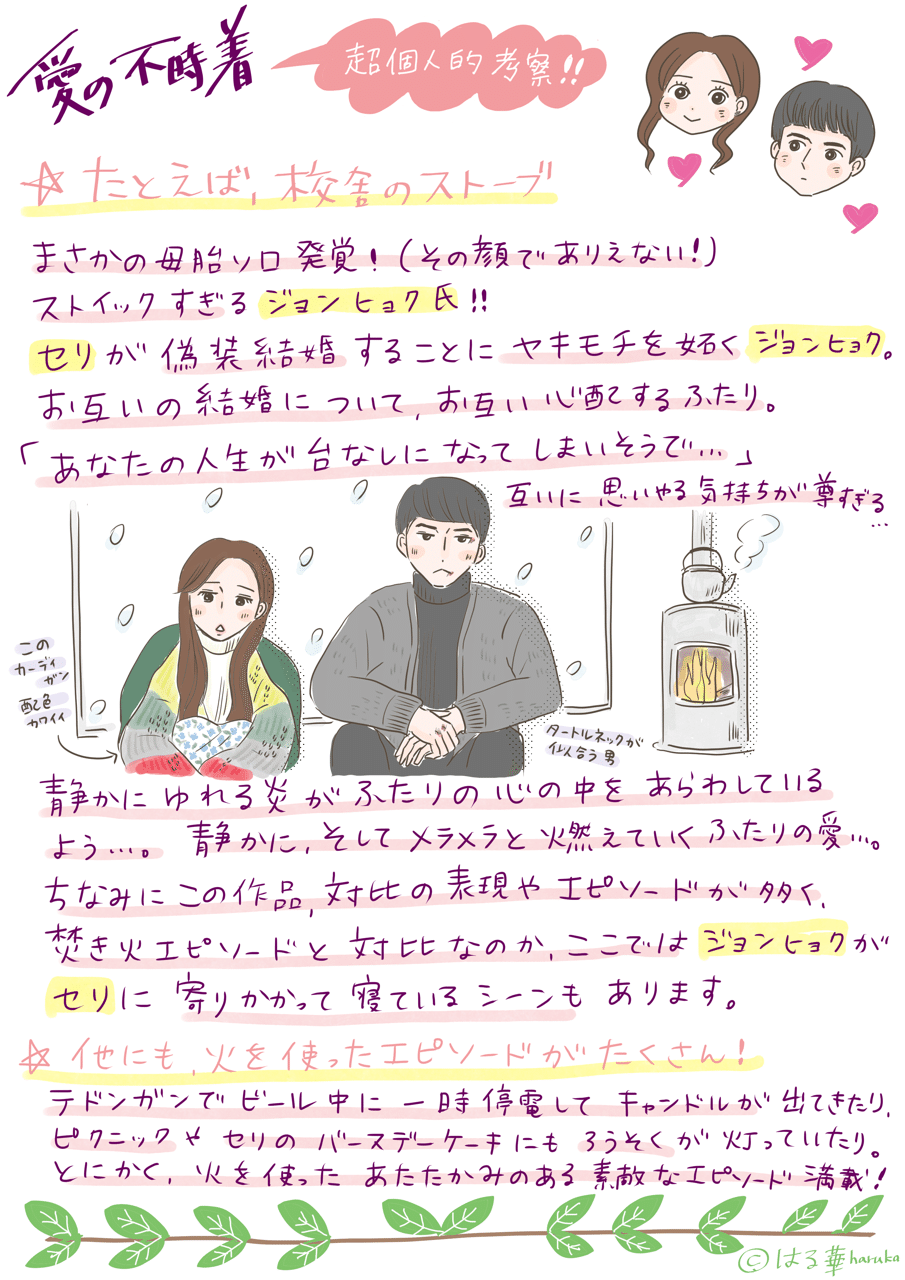 愛の不時着
超個人的考察!!
☆たとえば、校舎のストーブ
まさかの母胎ソロ発覚!(その顔でありえない!)
ストイックすぎるジョンヒョク氏!!
セリが偽装結婚することにヤキモチを妬くジョンヒョク。
お互いの結婚について、お互い心配するふたり。
「あなたの人生が台なしになってしまいそうで…」
互いに思いやる気持ちが尊すぎる
…
この
カーディ
ガン
配色
カワイイ
タートルネックが
似合う男
静かにゆれる炎がふたりの心の中をあらわしている
よう…。静かに、そしてメラメラと燃えていくふたりの愛…。
ちなみにこの作品、対比の表現やエピソードが多く、
焚き火エピソードと対比なのか、ここではジョンヒョクが
セリに寄りかかって寝ているシーンもあります。
☆他にも、火を使ったエピソードがたくさん!
テドンガンでビール中に一時停電してキャンドルが出てきたり、
ピクニックやセリのバースデーケーキにもろうそくが灯っていたり。
とにかく、火を使ったあたたかみのある素敵なエピソード満載!
©はる華haruka